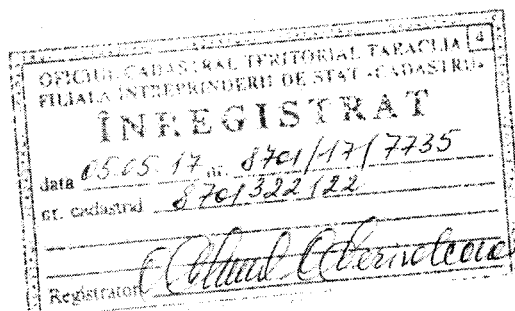 4
OFICIUL CADASTRAL TERITORIAL TARACLIA
FILIALA ÎNTREPRINDERII DE STAT «CADASTRU»
ÎNREGISTRAT
data 05.05.17 nr. 8701/17/7735
nr. cadastral 8701322122
Registrator